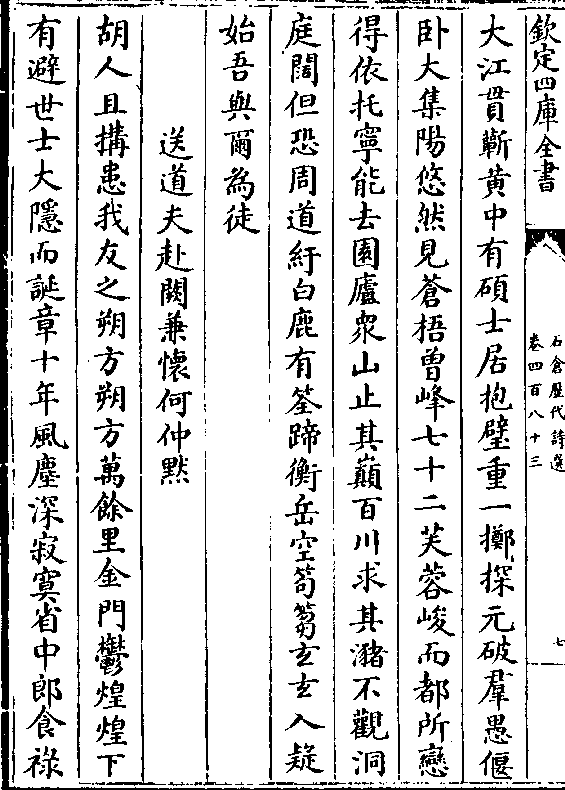 欽定四庫全書
石倉歷代詩選
卷四百八十三
七
大江貫蘄黃中有碩士居抱璧重一擲探元破羣愚偃
卧大集陽悠然見蒼梧曽峰七十二芙蓉峻而都所戀
得依托寧能去園廬衆山止其巔百川求其瀦不觀洞
庭闊但恐周道紆白鹿有筌蹄衡岳空荀蒭玄玄入疑
始吾與爾為徒
送道夫赴闕兼懷何仲黙
胡人且搆患我友之朔方朔方萬餘里金門鬱煌煌下
有避世士大隱而誕章十年風塵深寂寞省中郎食祿